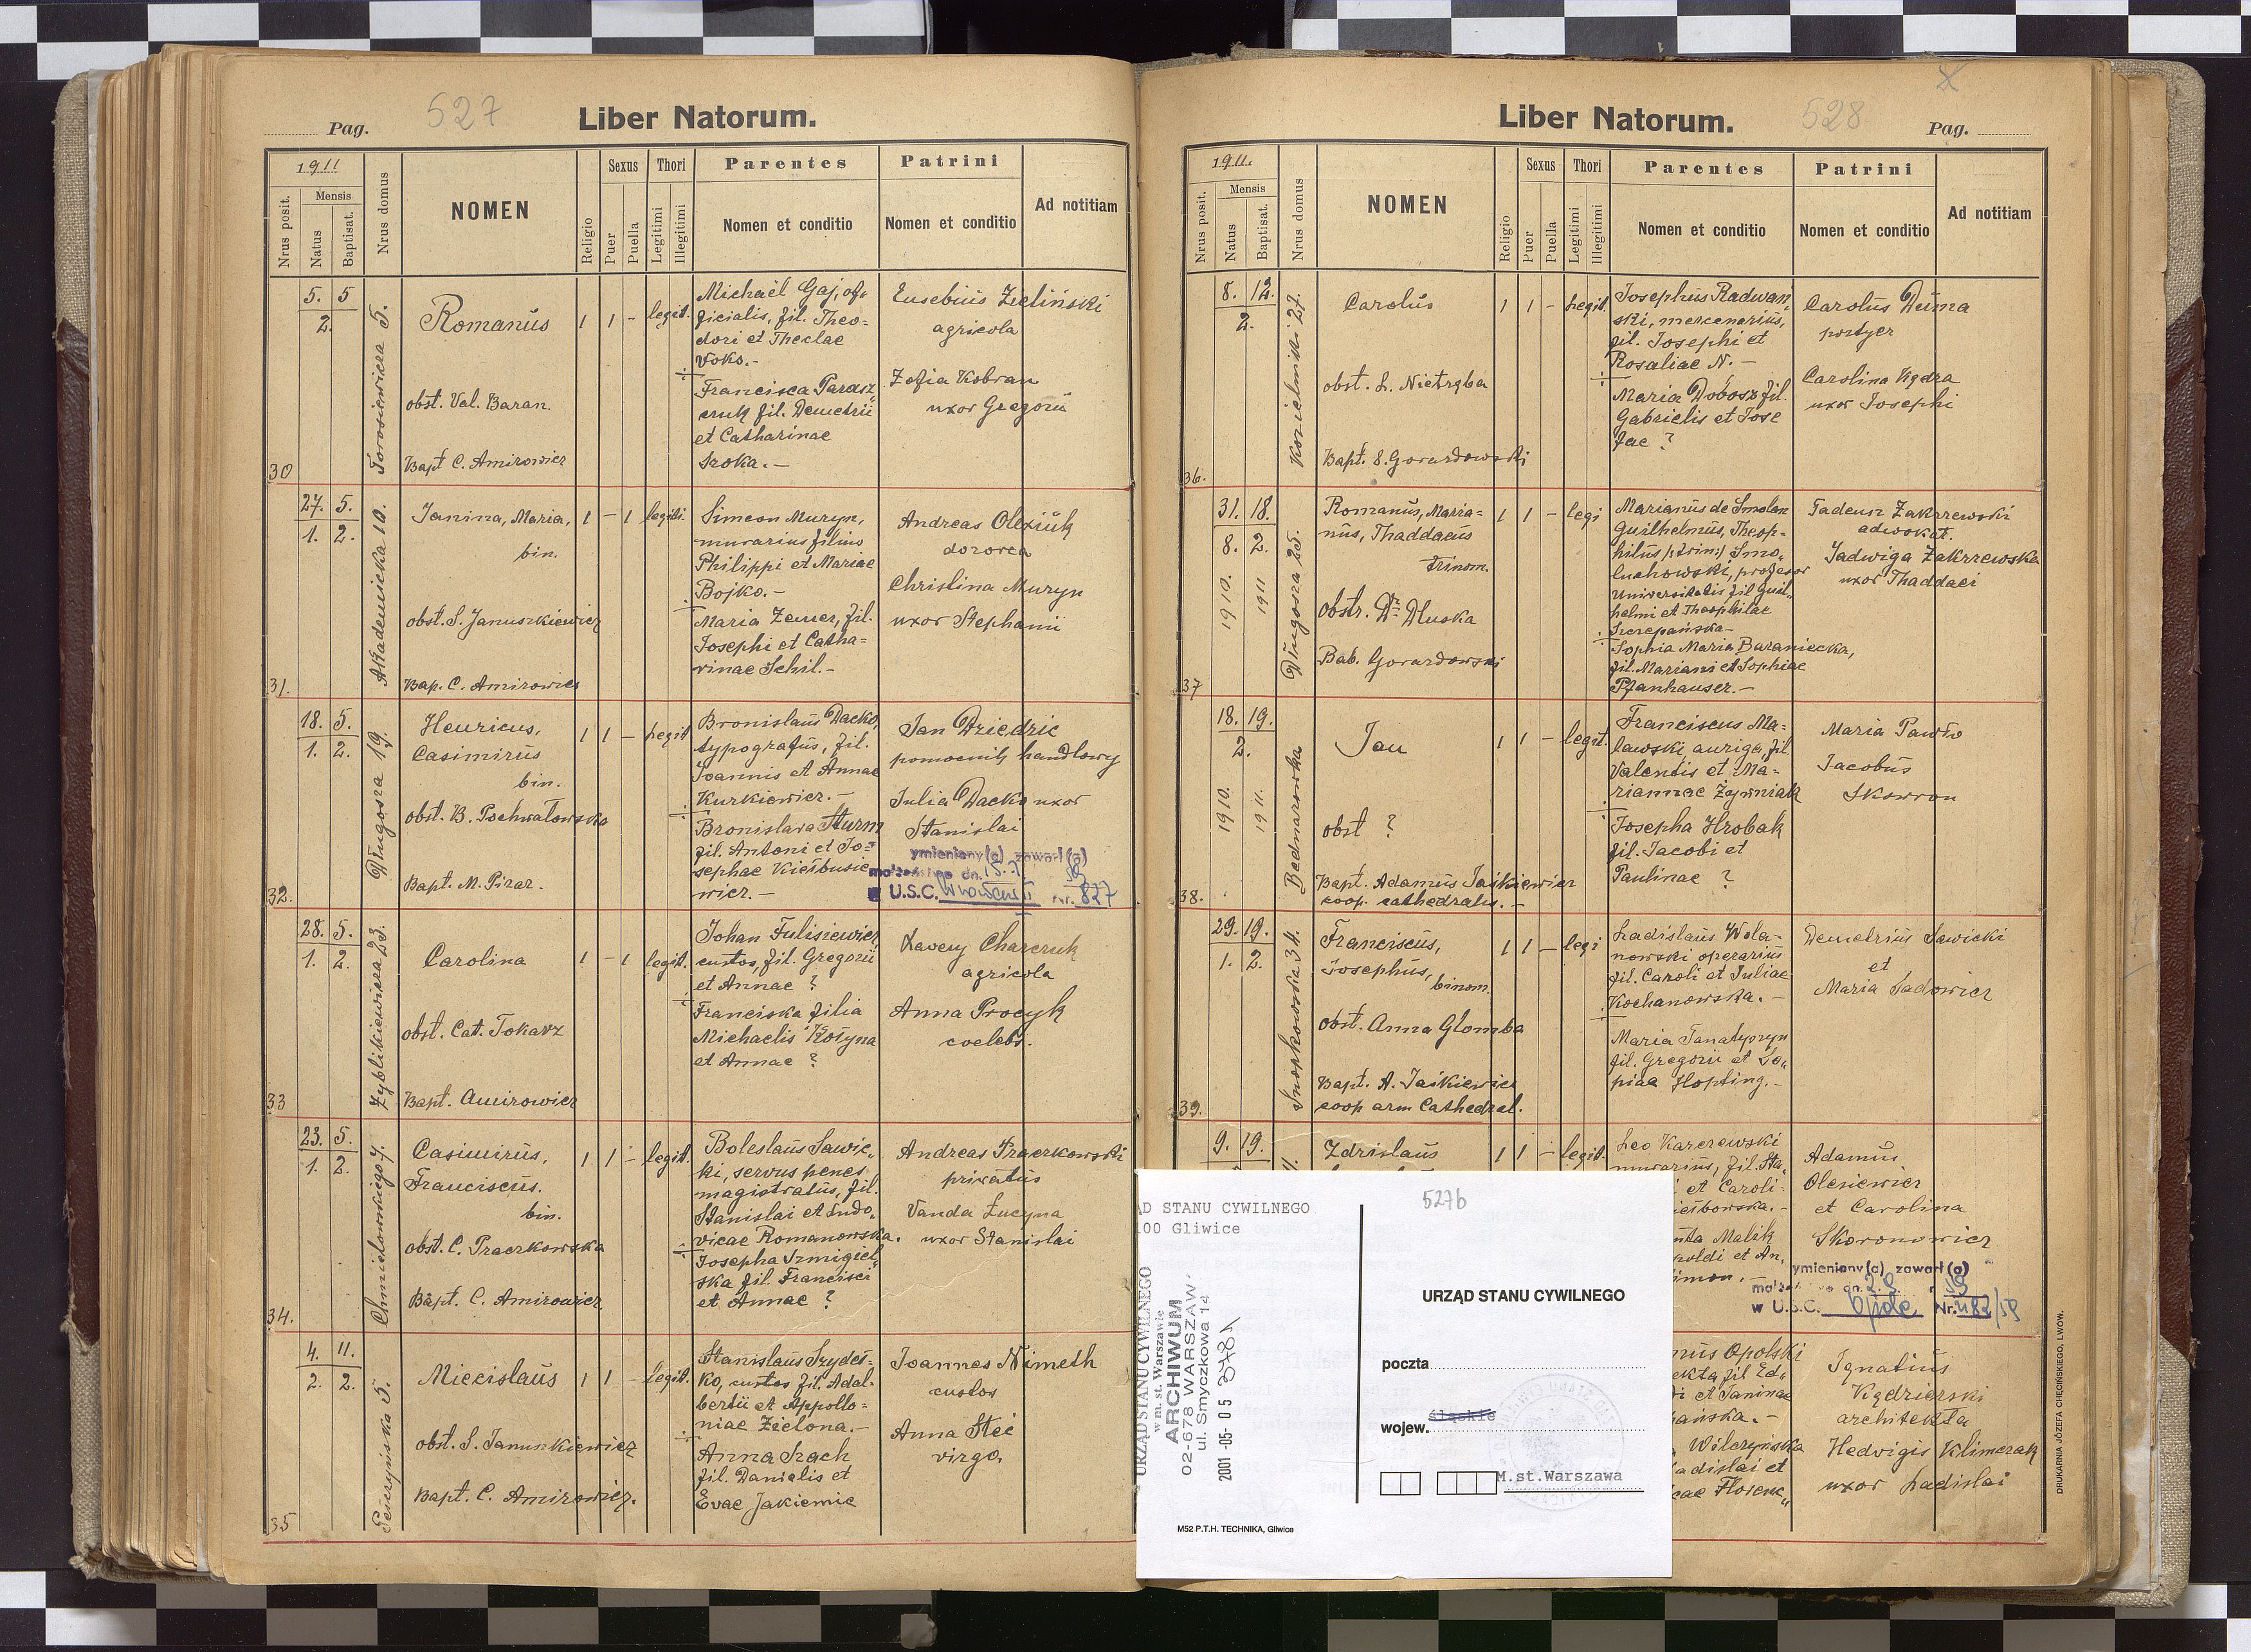 Pag.
527
Liber Natorum.
1911
Nrus posit.
Mensis
Natus
Baptisat.
Nrus domus
NOMEN
Religio
Sexus
Puer
Puella
Thori
Legitimi
Illegitimi
Parentes
Nomen et conditio
Patrini
Nomen et conditio
Ad notitiam
30
5. 5
2.
Romanus
1 1 - legit.
obst. Val. Baran.
Bapt C. Amirowicz
Michaël Gaj, of-
ficialis, fil. Theo-
dori et Theclae
Woko.-
Francisca Parasz-
czuk fil. Demetrii
et Catharinae
Sroka.-
Eusebius Zieliński
agricola
Zofia Kobran
uxor Gregorii
31.
27. 5.
1. 2.
Akademicka 10.
Janina, Maria,
bin.
1 - 1 legiti.
obst. S. Januszkiewicz
Bap. C. Amirowicz
Simeon Muryn,
murarius filius
Philippi et Mariae
Bojko.-
Maria Zemer, fil.
Josephi et Catha=
rinae Schil.-
Andreas Olexiuk
dozorca
Christina Muryn
uxor Stephanii
32.
18. 5.
1. 2.
Długosza 19.
Henricus,
Casimirus
bin.
1 1 - legit
obst. B. Pochwatowska
Bapt. M. Pirar.
Bronislaus Dacko,
typografus, fil.
Joannis et Annae
Kurkiewicz.-
Bronislava Sturm
fil. Antoni et Jo=
sephae Kiełbusie
wicz.-
Jan Dziedzic
pomocnik handlowy
Julia Dacko uxor
Stanislai
ymieniony(a) zawarł(a)
U.S.C. Wrocław nr. 827
33
28. 5.
1. 2.
Zyblikiewicza 23.
Carolina
1 - 1 legit.
obst. Cat. Tokarz
Bapt. Amirowicz
Johan Fulisiewicz,
custos, fil. Gregorii
et Annae ?
Franciska filia
Michaelis Kozyna
et Annae ?
Xavery Charczuk
agricola
Anna Procyk
coelebs.
34.
23. 5.
1. 2.
Chmielowskiego 7.
Casimirus,
Franciscus.
bin.
1 1 - legit.
obst. C. Praczkowska
Bapt. C. Amirowicz
Boleslaus Sawic-
ki, servus penes
magistratus, fil.
Stanislai et Ludo-
vicae Romanowska.
Josepha Szmigiel-
ska fil. Francisci
et Annae ?
Andreas Praczkowski
privatus
Vanda Łucyna
uxor Stanislai
35
4. 11.
2. 2.
Miecislaus
1 1 - legit.
obst. S. Januszkiewicz
Bapt. C. Amirowicz.
Stanislaus Szydeł=
ko, custos fil. Adal-
bertii et Appollo=
niae Zielona.-
Anna Szach
fil. Danielis et
Evae Jakiemie
Joannes Nimeth
custos
Anna Stei
virgo.
Liber Natorum.
528
Pag.
1911.
Nrus posit.
Mensis
Natus
Baptisat.
Nrus domus
NOMEN
Religio
Sexus
Puer
Puella
Thori
Legitimi
Illegitimi
Parentes
Nomen et conditio
Patrini
Nomen et conditio
Ad notitiam
36.
8. 12.
2.
27.
Carolus
1 1 - Legit.
obst. L. Nietrzba
Bapt. S. Gorardowski
Josephus Radwań
ski, mercenarius,
fil. Josephi et
Rosaliae N.-
Maria Dobosz fil.
Gabrielis et Jose
fae ?
Carolus Duma
portyer
Carolina Kędra
uxor Josephi
37
31. 18.
8. 2.
1910. 1911
Długosza 25.
Romanus, Maria=
nus, Thaddaeus
trinom.
1 1 - legi
obstr. Dr Dłuska
Bab. Gorardowski
Marianus de Smolan
Guilhelmus, Theop-
hilus (trin.) Smo-
luchowski, profesor
Universitatis fil Guil-
helmi et Theophilae
Szczepańska-
Sophia Maria Baraniecka,
fil. Mariani et Sophiae
Pfanhauser.-
Tadeusz Zakrzewski
adwokat.
Jadwiga Zakrzewska
uxor Thaddaei
38.
18. 19.
2.
1910. 1911.
Bednarowka
Jan
1 1 - legit.
obst ?
Bapt. Adamus Jaśkiewicz
coop. cathedralis.-
Franciscus Ma=
lawski auriga, fil.
Valentis et Ma=
riannae Żywniak
Josepha Hrobak
fil. Jacobi et
Paulinae ?
Maria Pawło
Jacobus
Skowron
39.
29. 19.
1. 2.
Snopkowska 34.
Franciscus,
Josephus,
binom.
1 1 - legi
obst. Anna Glomba
Bapt. A. Jaśkiewicz
coop arm Cathedral.
Ladislaus Wola-
nowski operarius
fil. Caroli et Juliae
Kochanowska.-
Maria Tanatypryn
fil. Gregorii et So-
phiae Hopting.-
Demetrius Sawicki
et
Maria Sadowicz
9. 19.
Zdzislaus
1 1 - legit.
Leo Karczewski
murarius, fil. Sta-
et Caroli-
Malik
poldi et An-
imon.-
Adamus
Olesiewicz
et Carolina
Skoronowicz
ymieniony(a) zawarł(a)
w U.S.C. Opole Nr. 482/59
Opolski
ekta fil Ed-
di et Janinae
ańska.-
Wilczyńska
adislai et
Ignatius
Kędzierski
architekta
Hedvigis Klimczak
uxor Ladislai
AD STANU CYWILNEGO
100 Gliwice
527b
URZĄD STANU CYWILNEGO
w m. st. Warszawie
ARCHIWUM
02-678 WARSZAWA
ul. Smyczkowa 14
2001 -05- 05
URZĄD STANU CYWILNEGO
poczta
wojew. śląskie
M.st.Warszawa
M52 P.T.H. TECHNIKA, Gliwice
DRUKARNIA JÓZEFA CHĘCIŃSKIEGO, LWÓW.